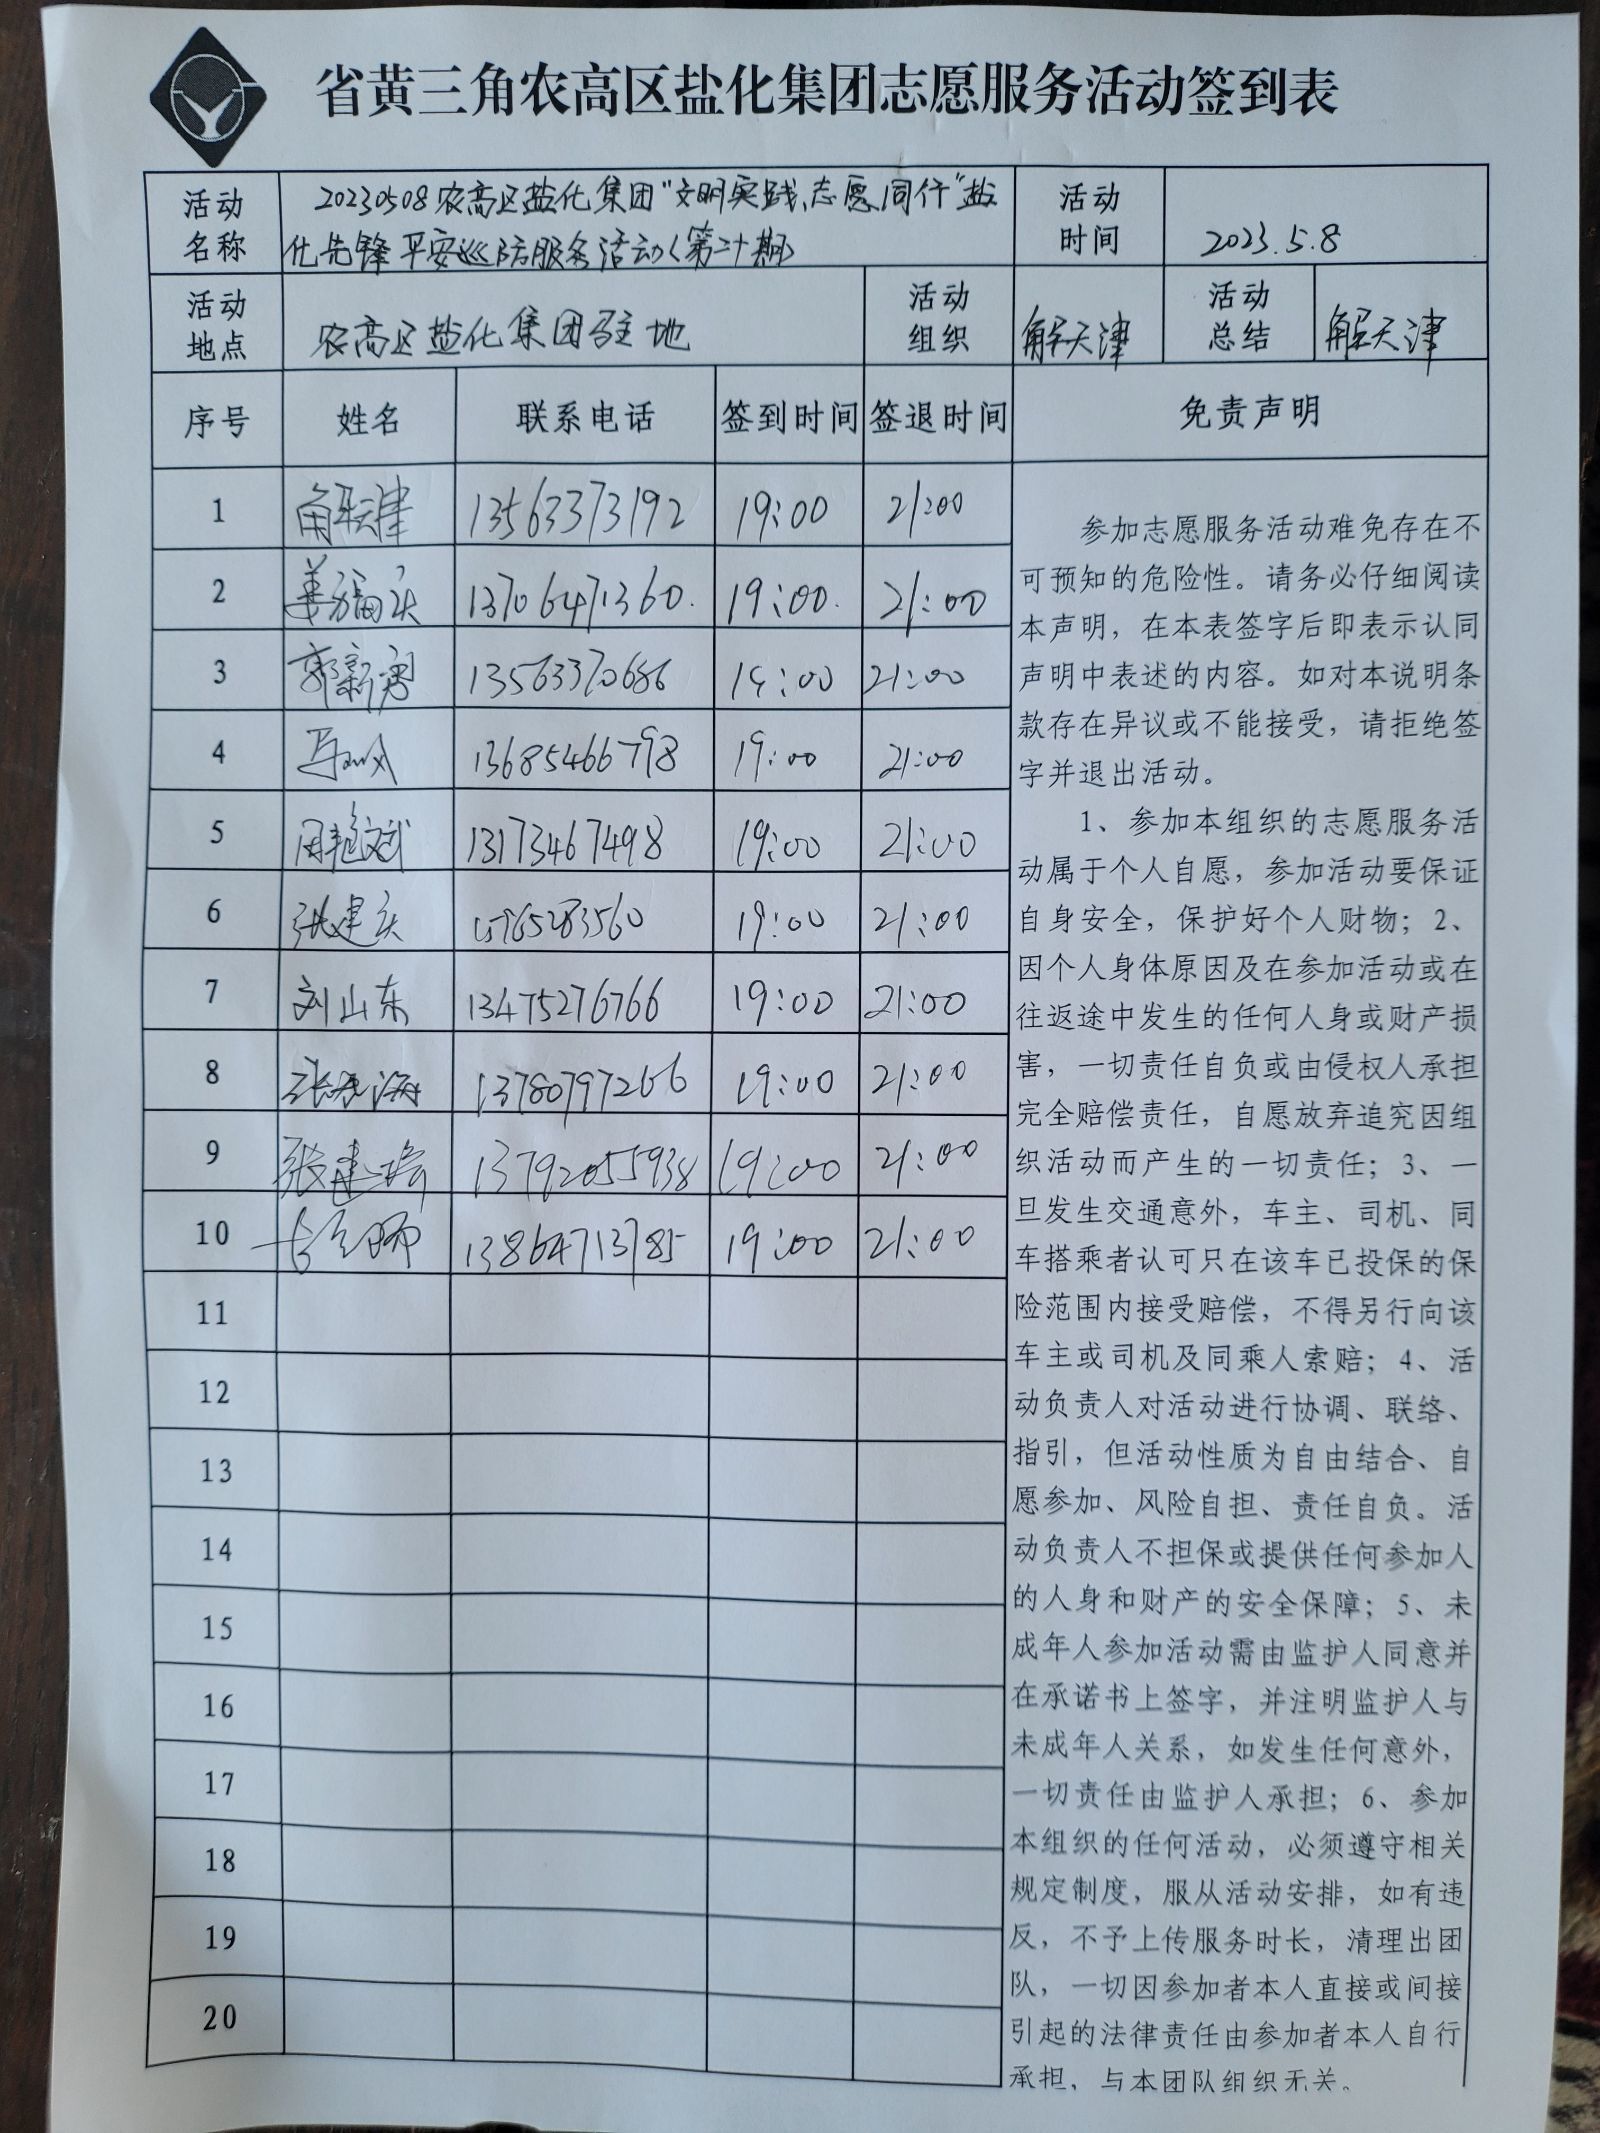 省黄三角农高区盐化集团志愿服务活动签到表
活动名称 20230508农高区盐化集团“文明实践、志愿同行”盐 活动时间 2023.5.8
化先锋平安巡防服务活动(第二十期)
活动地点 农高区盐化集团驻地 活动组织 解天津 活动总结 解天津
序号 姓名 联系电话 签到时间 签退时间 免责声明
1 解天津 13563373192 19:00 21:00
2 姜福庆 13706471360. 19:00. 21:00
3 郭新勇 13563370686 19:00 21:00
4 13685466798 19:00 21:00
5 周艳斌 13173467498 19:00 21:00
6 张建庆 15765283560 19:00 21:00
7 刘山东 13475276766 19:00 21:00
8 13780797266 19:00 21:00
9 张建 13792055938 19:00 21:00
10 13864713785 19:00 21:00
11
12
13
14
15
16
17
18
19
20
参加志愿服务活动难免存在不
可预知的危险性。请务必仔细阅读
本声明，在本表签字后即表示认同
声明中表述的内容。如对本说明条
款存在异议或不能接受，请拒绝签
字并退出活动。
1、参加本组织的志愿服务活
动属于个人自愿，参加活动要保证
自身安全，保护好个人财物；2、
因个人身体原因及在参加活动或在
往返途中发生的任何人身或财产损
害，一切责任自负或由侵权人承担
完全赔偿责任，自愿放弃追究因组
织活动而产生的一切责任；3、一
旦发生交通意外，车主、司机、同
车搭乘者认可只在该车已投保的保
险范围内接受赔偿，不得另行向该
车主或司机及同乘人索赔；4、活
动负责人对活动进行协调、联络、
指引，但活动性质为自由结合、自
愿参加、风险自担、责任自负。活
动负责人不担保或提供任何参加人
的人身和财产的安全保障；5、未
成年人参加活动需由监护人同意并
在承诺书上签字，并注明监护人与
未成年人关系，如发生任何意外，
一切责任由监护人承担；6、参加
本组织的任何活动，必须遵守相关
规定制度，服从活动安排，如有违
反，不予上传服务时长，清理出团
队，一切因参加者本人直接或间接
引起的法律责任由参加者本人自行
承担，与本团队组织无关。